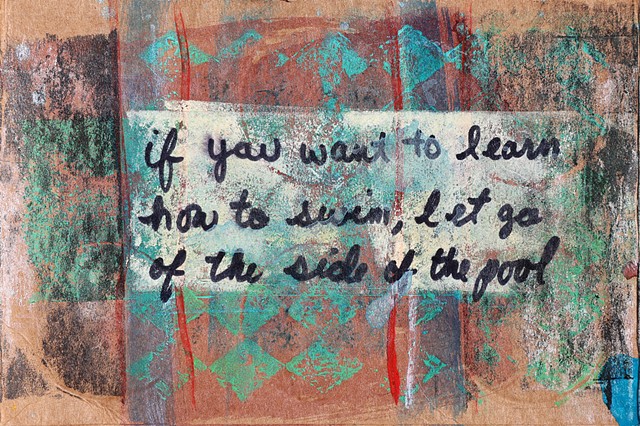 if you want to learn
how to swim, let go
of the side of the pool